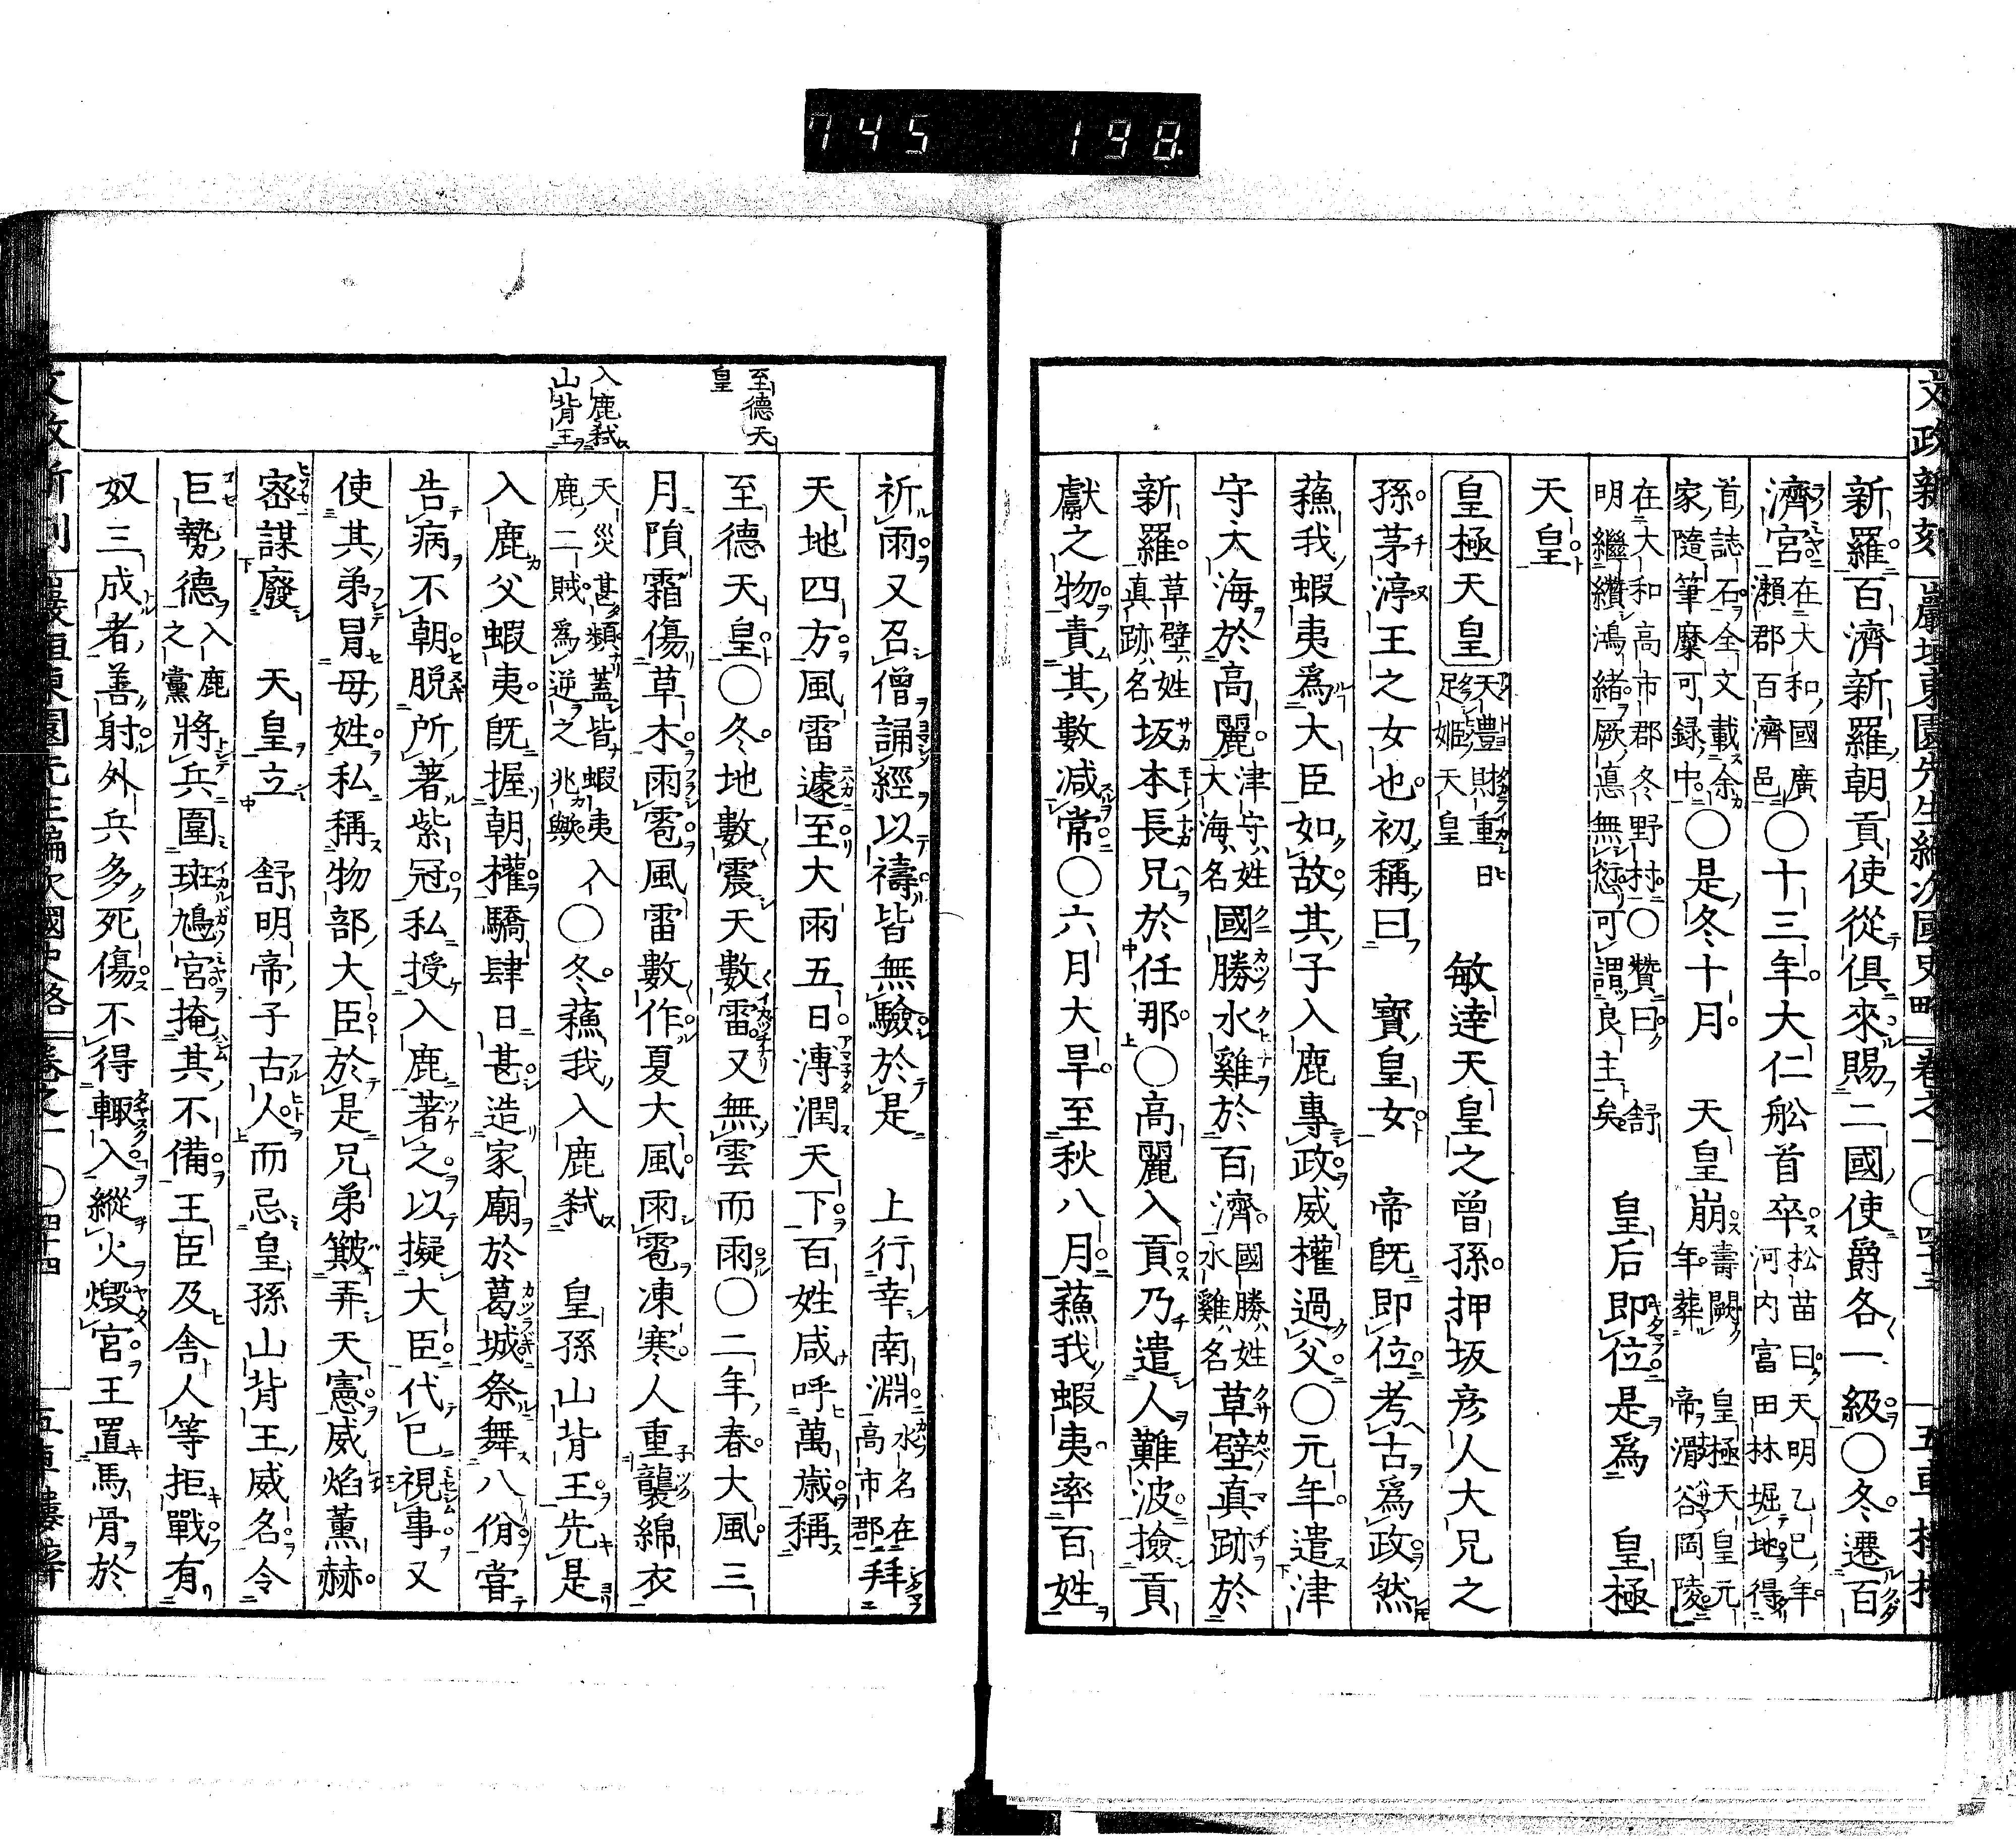 745 198
文政新刻 巖垣東園先生編次國史略 卷之一 〇四十三 五車樓梓
新羅百濟新羅朝貢使從俱來賜二國使爵各一級〇冬遷百
濟宮在大和國廣瀨郡百濟邑〇十三年大仁舩首卒松苗曰天明乙巳年河内富田林堀地得
首誌石全文載余家隨筆糜可録中〇是冬十月 天皇崩壽闕年葬 皇極天皇元帝滑谷岡陵
在大和高市郡冬野村〇贊曰 舒明繼纘鴻緒厥悳無愆可謂良主矣 皇后即位是爲 皇極
天皇
皇極天皇天豐財重日足姬天皇 敏達天皇之曾孫押坂彦人大兄之
孫茅渟王之女也初稱曰 寶皇女 帝既即位考古爲政然
蘓我蝦夷爲大臣如故其子入鹿專政威權過父〇元年遣津
守大海於高麗津守姓大海名國勝水雞於百濟國勝姓水雞名草壁真跡於
新羅草壁姓真跡名坂本長兄於任那〇高麗入貢乃遣人難波撿貢
獻之物責其數減常〇六月大旱至秋八月蘓我蝦夷率百姓
祈雨又召僧誦經以禱皆無驗於是 上行幸南淵水名在高市郡拜
天地四方風雷遽至大雨五日溥潤天下百姓咸呼萬歳稱
至德天皇
至德天皇〇冬地數震天數雷又無雲而雨〇二年春大風三
月隕霜傷草木雨雹風雷數作夏大風雨雹凍寒人重襲綿衣
入鹿弑山背王
天災甚類蓋皆蝦夷入鹿二賊爲逆之兆歟〇冬蘓我入鹿弑 皇孫山背王先是
入鹿父蝦夷既握朝權驕肆日甚造家廟於葛城祭舞八佾嘗
告病不朝脱所著紫冠私授入鹿著之以擬大臣代已視事又
使其弟冒母姓私稱物部大臣於是兄弟簸弄天憲威焰薰赫
宻謀廢 天皇立 舒明帝子古人而忌皇孫山背王威名令
巨勢德入鹿之黨將兵圍斑鳩宮掩其不備王臣及舎人等拒戰有
奴三成者善射外兵多死傷不得輙入縱火燬宮王置馬骨於
文政新刻 巖垣東園先生編次國史略 卷之一 〇四十四 五車樓梓